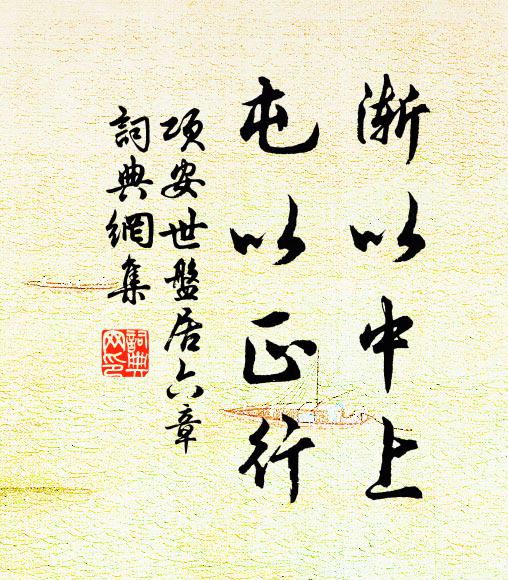 漸以中上
屯以正行
項安世盤居六章
詞典網集
詞典網印